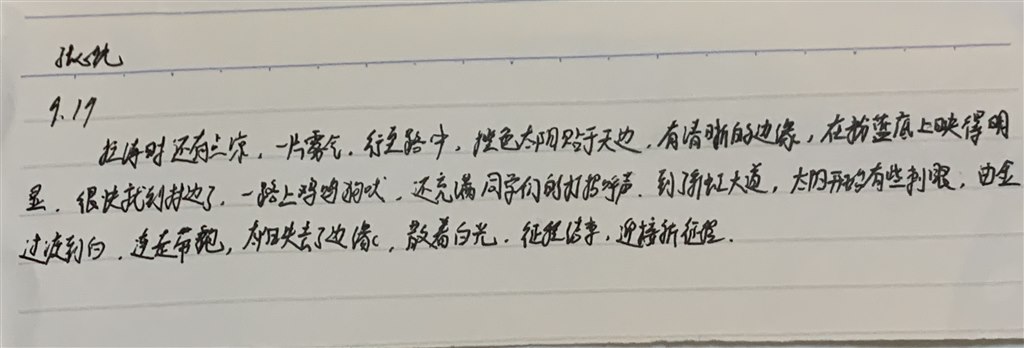 9.19
时还有点凉，一片雾气，行至路中，橙色太阳贴于天边，有清晰的边缘，在粉蓝底上映得明
显，很快就到村边了，一路上鸡鸣狗吠，还充满同学们的打招呼声，到了新虹大道，太阳开始有些刺眼，由金
过渡到白，连走带跑，太阳失去了边缘，散着白光，征程结束，迎接新征程。